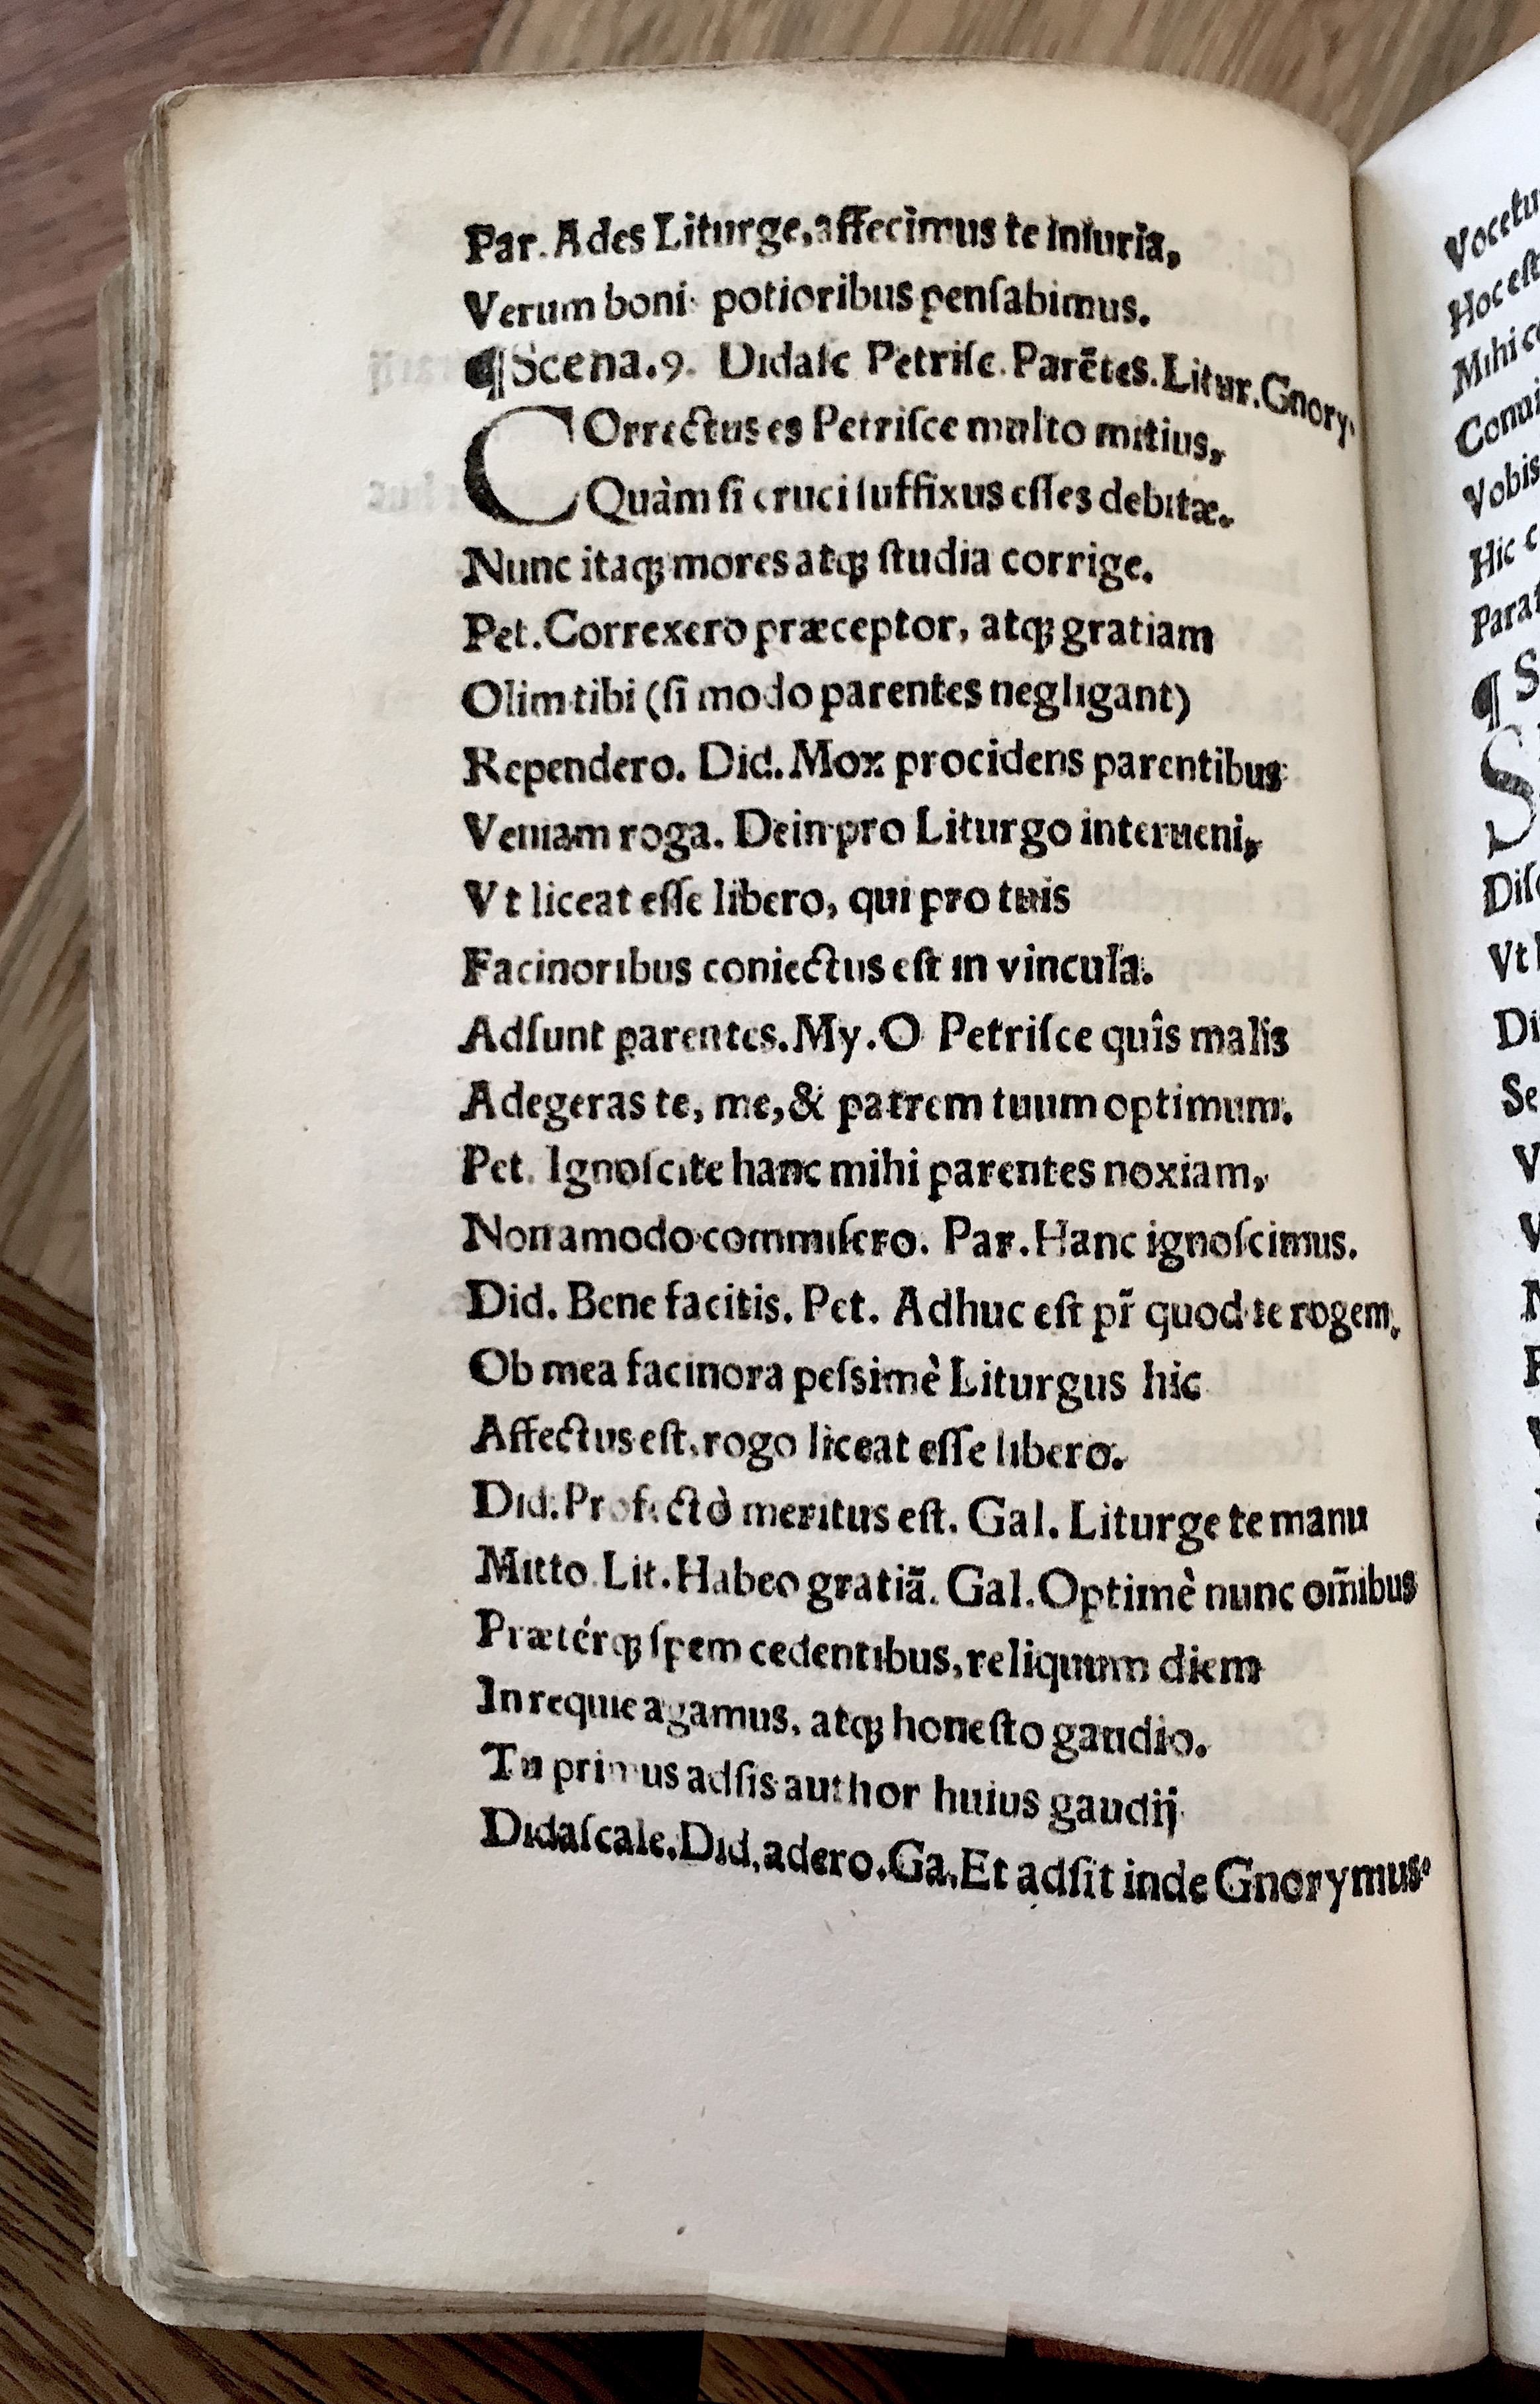 Par. Ades Liturge, affecimus te iniuria,
Verum boni potioribus penſabimus.
¶ Scena. 9. Didaſc Petriſc. Parẽtes. Litur. Gnory.
COrrectus es Petriſce multo mitius,
Quàm ſi cruci ſuffixus eſſes debitæ.
Nunc itaqꝫ mores atqꝫ ſtudia corrige.
Pet. Correxero præceptor, atqꝫ gratiam
Olim tibi (ſi modo parentes negligant)
Rependero. Did. Mox procidens parentibus
Veniam roga. Dein pro Liturgo interueni,
Vt liceat eſſe libero, qui pro tuis
Facinoribus coniectus eſt in vincula.
Adſunt parentes. My. O Petriſce quîs malis
Adegeras te, me, & patrem tuum optimum.
Pet. Ignoſcite hanc mihi parentes noxiam,
Non amodo commiſero. Par. Hanc ignoſcimus.
Did. Bene facitis. Pet. Adhuc eſt pr̃ quod te rogem,
Ob mea facinora peſsimè Liturgus hic
Affectus eſt, rogo liceat eſſe libero.
Did. Profectò meritus eſt. Gal. Liturge te manu
Mitto. Lit. Habeo gratiã. Gal. Optimè nunc om̃ibus
Prætérqꝫ ſpem cedentibus, reliquum diem
In requie agamus, atqꝫ honeſto gaudio.
Tu primus adſis author huius gaudij
Didaſcale. Did, adero. Ga, Et adſit inde Gnorymus.
Hic c
Di
Se